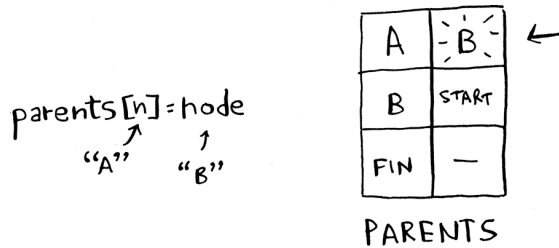 parents[n]=node
“A” “B”
A B
B START
FIN —
PARENTS